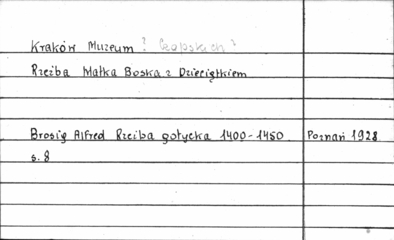 Kraków Muzeum ? Czapskich ?
Rzeźba Matka Boska z Dzieciątkiem
Brosig Alfred Rzeźba gotycka 1400-1450 Poznań 1928
s. 8